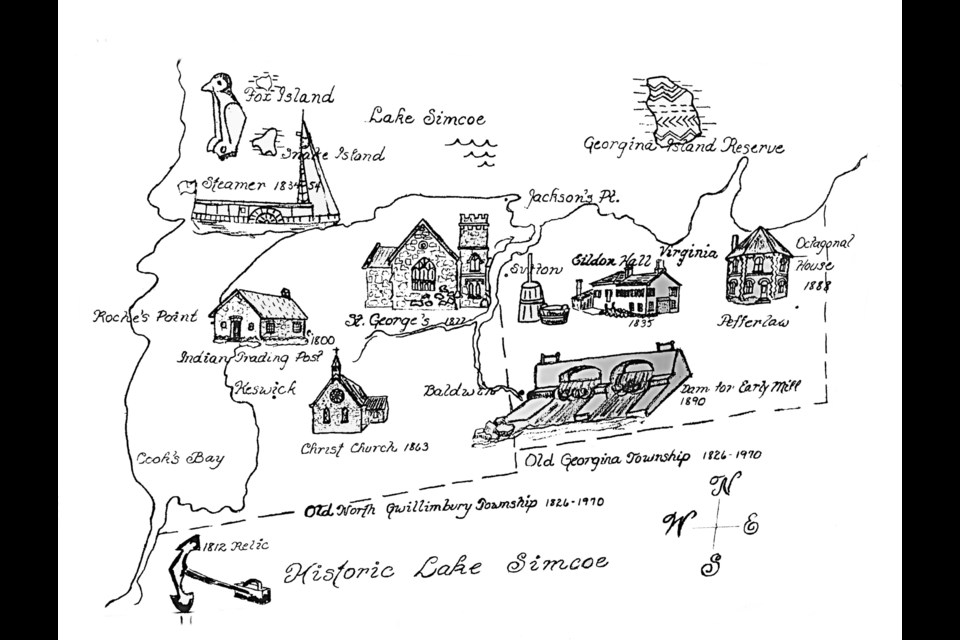 Fox Island
Lake Simcoe
Snake Island
Georgina Island Reserve
Steamer 1834-54
Jackson's Pt.
Sutton
Eildon Hall
1835
Virginia
Octagonal
House
1888
Pefferlaw
Roche's Point
St. George's
1800
Indian Trading Post
Keswick
Baldwin
Dam for Early Mill
1890
Christ Church 1863
Cook's Bay
Old Georgina Township 1826-1970
Old North Gwillimbury Township 1826-1970
N
W
E
S
1812 Relic
Historic Lake Simcoe